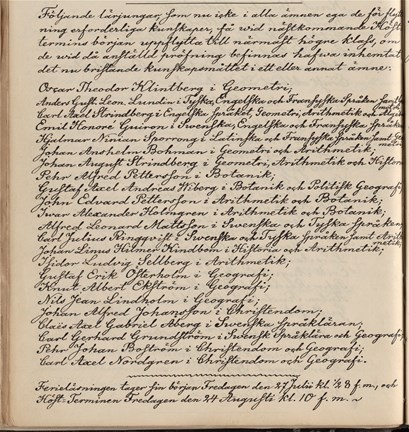 Följande lärjungar, som nu icke i alla ämnen ega de för flytt-
ning erforderliga kunskaper, få vid nästkommande Höst-
termins början uppflytta till närmast högre klass, om
de vid då anställd pröfning befinnas hafva inhemtat
det nu bristande kunskapsmåttet i ett eller annat ämne:
Oscar Theodor Klintberg i Geometri;
Anders Gust. Leon. Lundin i Tyska, Engelska och Fransyska Språken samt
Carl Axel Strindberg i Engelska Språket, Geometri, Arithmetik och
Emil Honoré i Swenska, Engelska och Fransyska
Hjalmar Ninian Sparrong i Latinska och Fransyska Språken, samt
Johan Anshelm Bohman i Geometri och Arithmetik;
Johan August Strindberg i Geometri, Arithmetik och Historia
Pehr Alfred Pettersson i Botanik;
Gustaf Axel Andreas Wiberg i Botanik och Politisk Geografi;
John Edward Pettersson i Arithmetik och Botanik;
Ivar Alexander Holmgren i Arithmetik och Botanik;
Alfred Leonard Mattson i Swenska och Tyska Språken
Carl Julius Ringqvist i Swenska och Tyska Språken samt Arith-
metik;
Johan Linus Hilmer Kindbom i Historia och Arithmetik;
Isidor Ludvig Sellberg i Arithmetik;
Gustaf Erik Österholm i Geografi;
Knut Albert Ekström i Geografi;
Nils Jean Lindholm i Geografi;
Johan Alfred Johansson i Christendom;
Claës Axel Gabriel Åberg i Swenska Språkläran;
Carl Gerhard Grundström i Swensk Språklära och Geografi;
Pehr Johan Boström i Christendom och Geografi;
Carl Axel Nordgren i Christendom och Geografi.
Ferieläsningen tager sin början Fredagen den 27 Julii kl. ½8 f.m., och
Höst-Terminen Fredagen den 24 Augusti kl. 10 f. m.